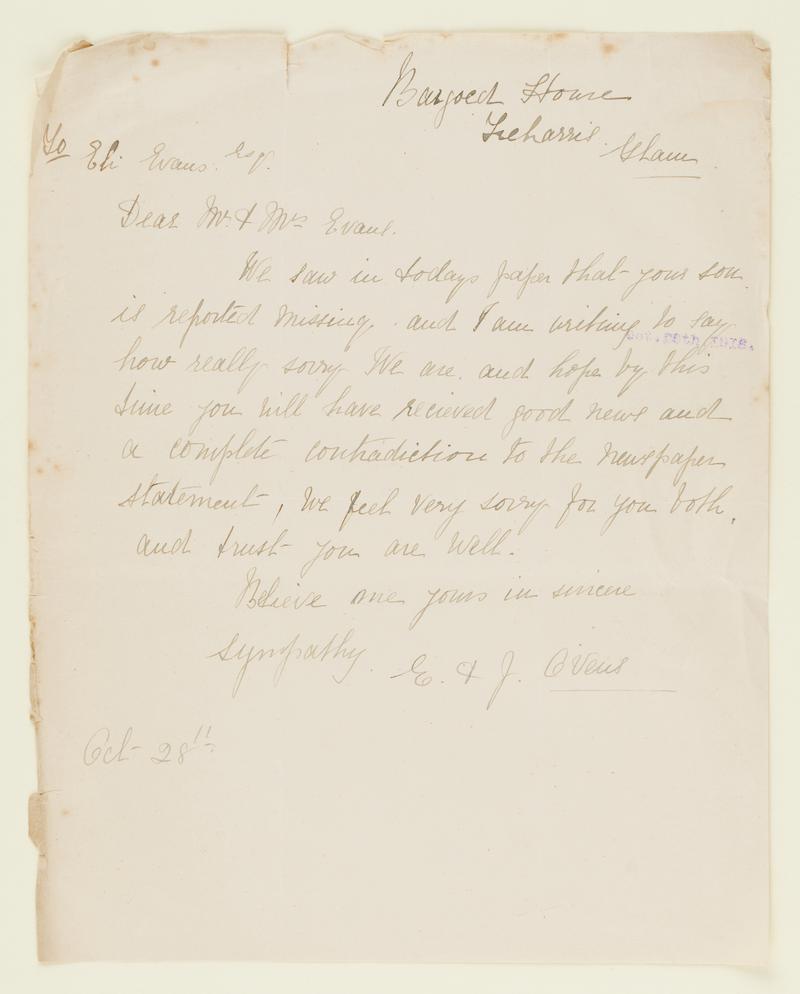 Bargoed House
Treharris.
Glam
To Eli Evans. Esq.
Dear Mr. & Mrs Evans.
We saw in todays paper that your son
is reported missing. and I am writing to say
Oct. 28th, 1918.
how really sorry We are. and hope by this
time you will have recieved good news and
a complete contradiction to the newspaper
statement, we feel very sorry for you both,
and trust you are well.
Believe me yours in sincere
sympathy.
E. & J. Ovens
Oct 28th